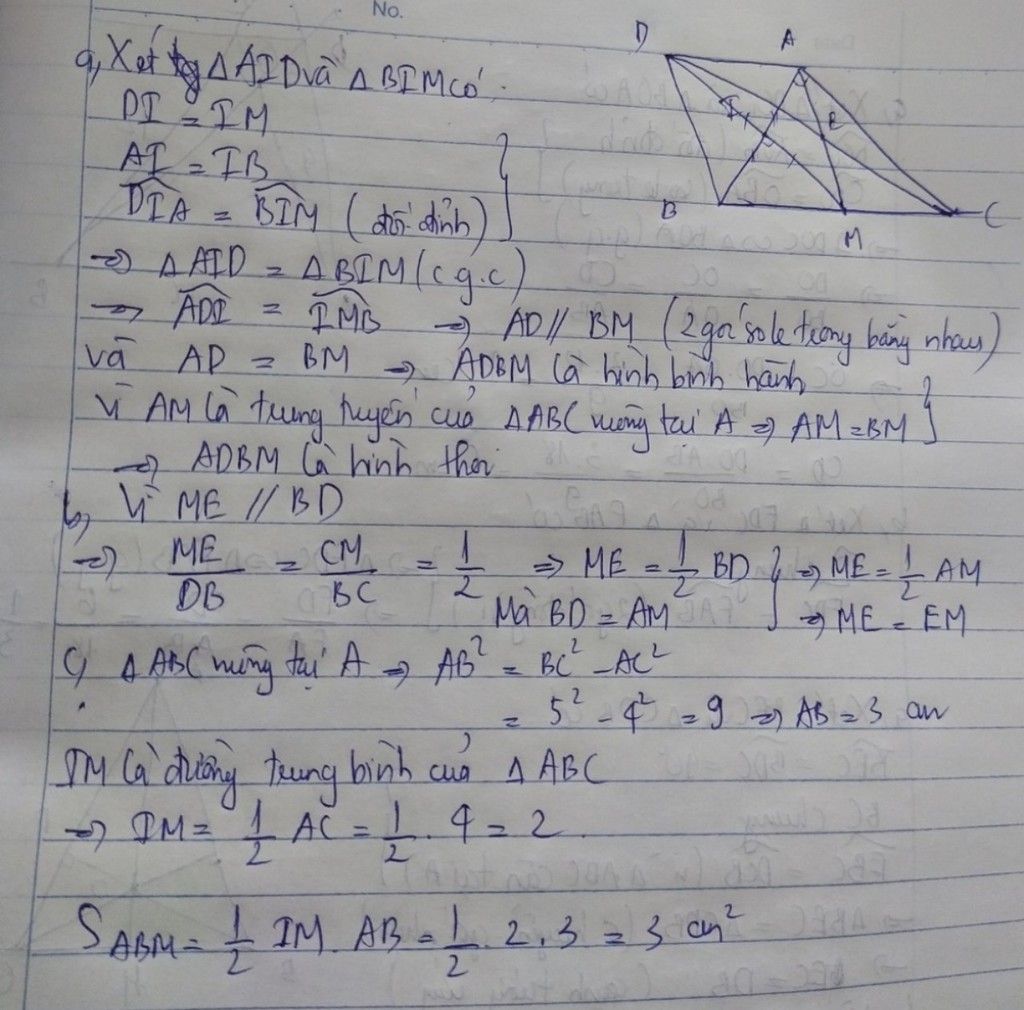 No.
a, Xét △AID và △BIM có:
DI = IM
AI = IB
DIA = BIM (đối đỉnh)
=> △AID = △BIM (c g.c)
-> ADI = IMB => AD // BM (2 góc sole trong bằng nhau)
và AD = BM => ADBM là hình bình hành
Vì AM là trung tuyến của △ABC vuông tại A => AM = BM
=> ADBM là hình thoi
b, Vì ME // BD
=> ME/DB = CM/BC = 1/2 => ME = 1/2 BD => ME = 1/2 AM
Mà BD = AM => ME = EM
c, △ABC vuông tại A => AB² = BC² - AC²
= 5² - 4² = 9 => AB = 3 cm
IM là đường trung bình của △ABC
=> IM = 1/2 AC = 1/2 . 4 = 2
S ABM = 1/2 IM . AB = 1/2 . 2 . 3 = 3 cm²
D
A
I
E
B
M
C